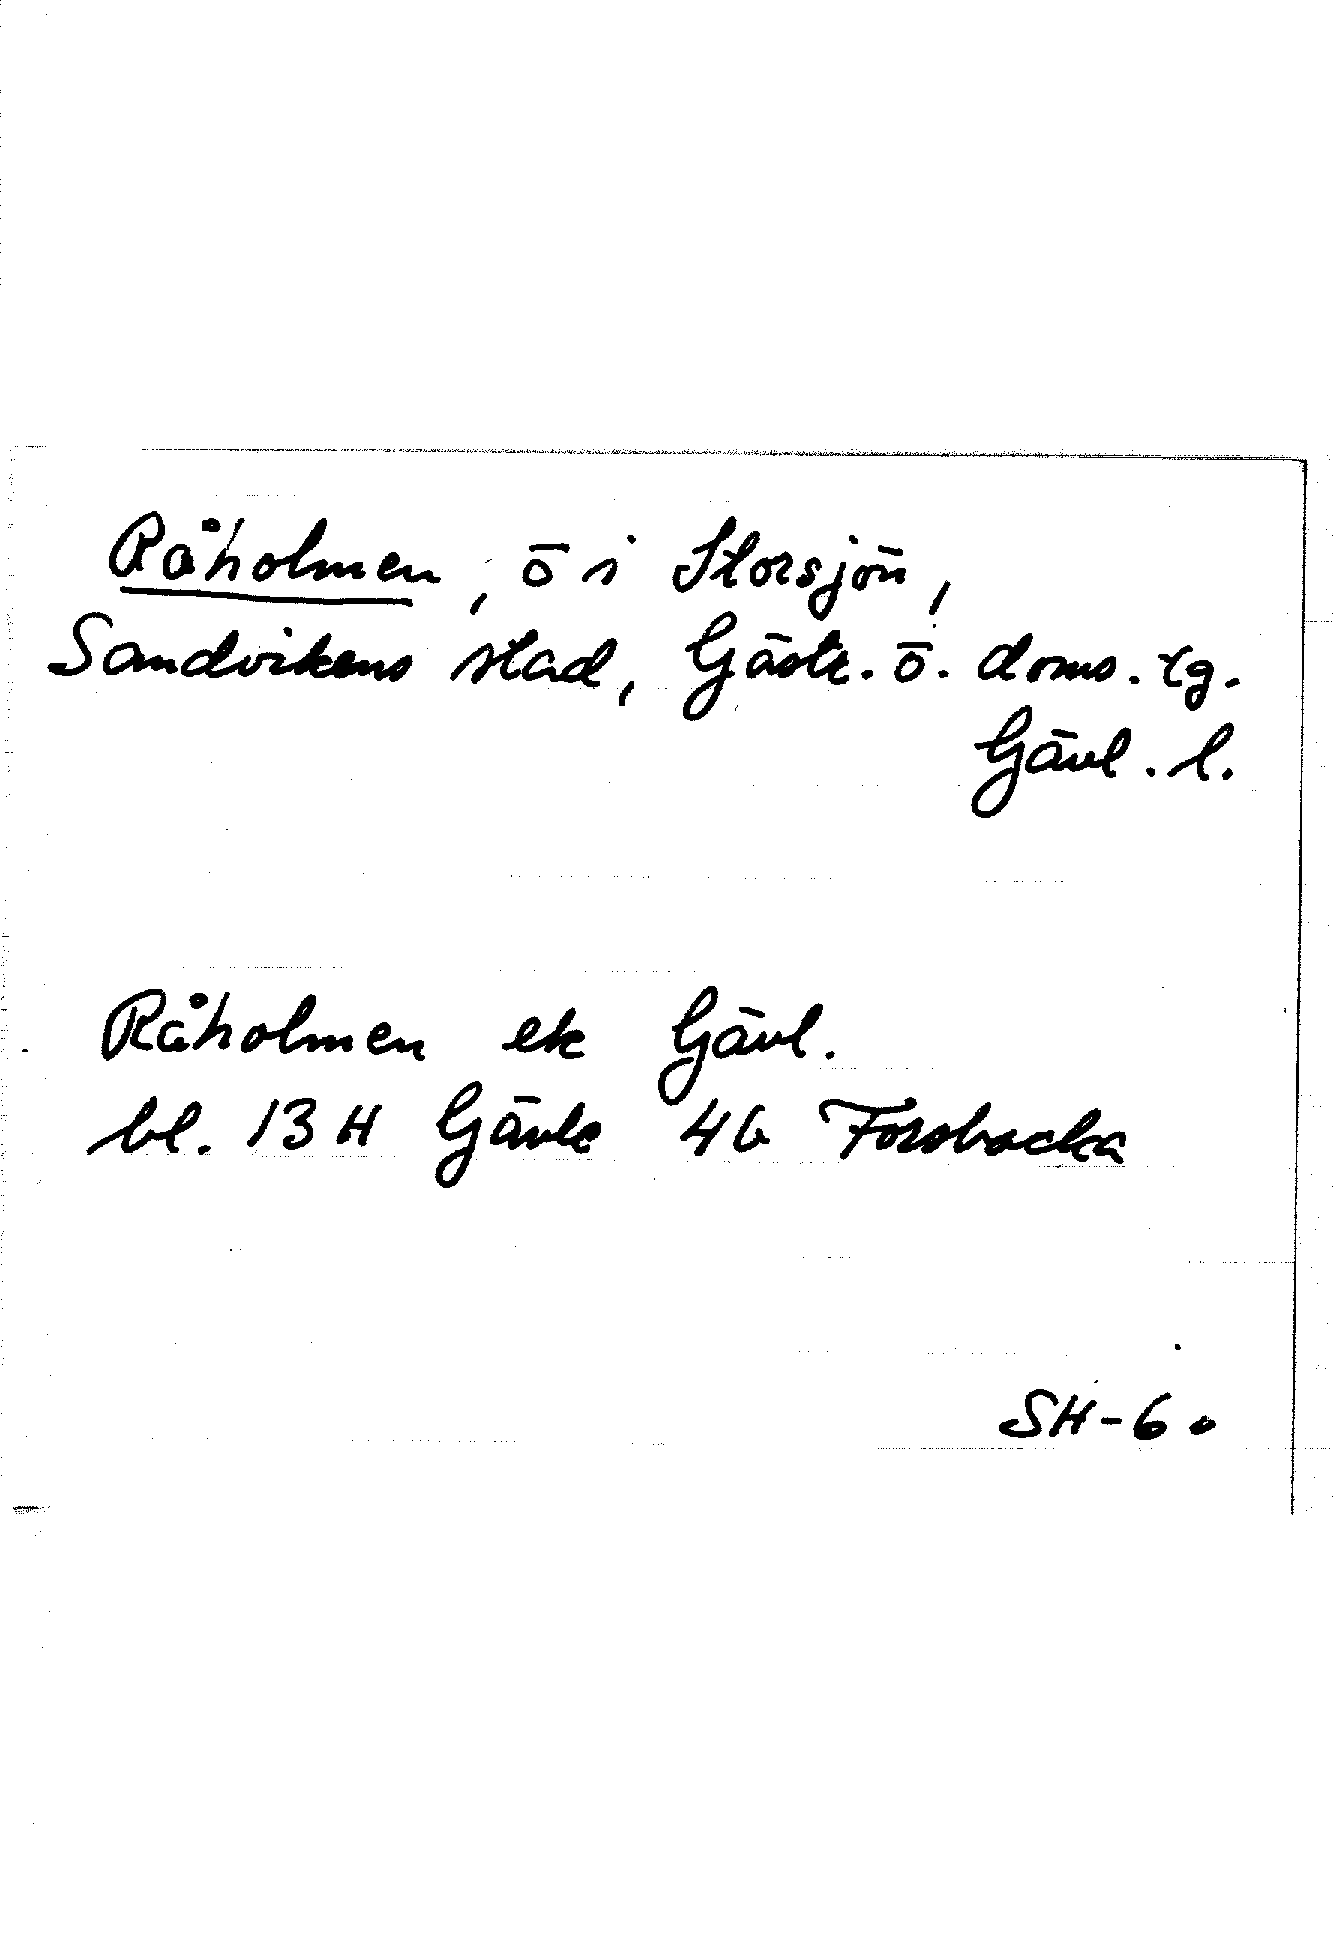 Råholmen, ö i Storsjön,
Sandvikens stad, Gästr. ö. doms. tg.
Gävl. l.
Råholmen ek Gävl.
bl. 13 H Gävle 4b Forsbacka
SH-6.